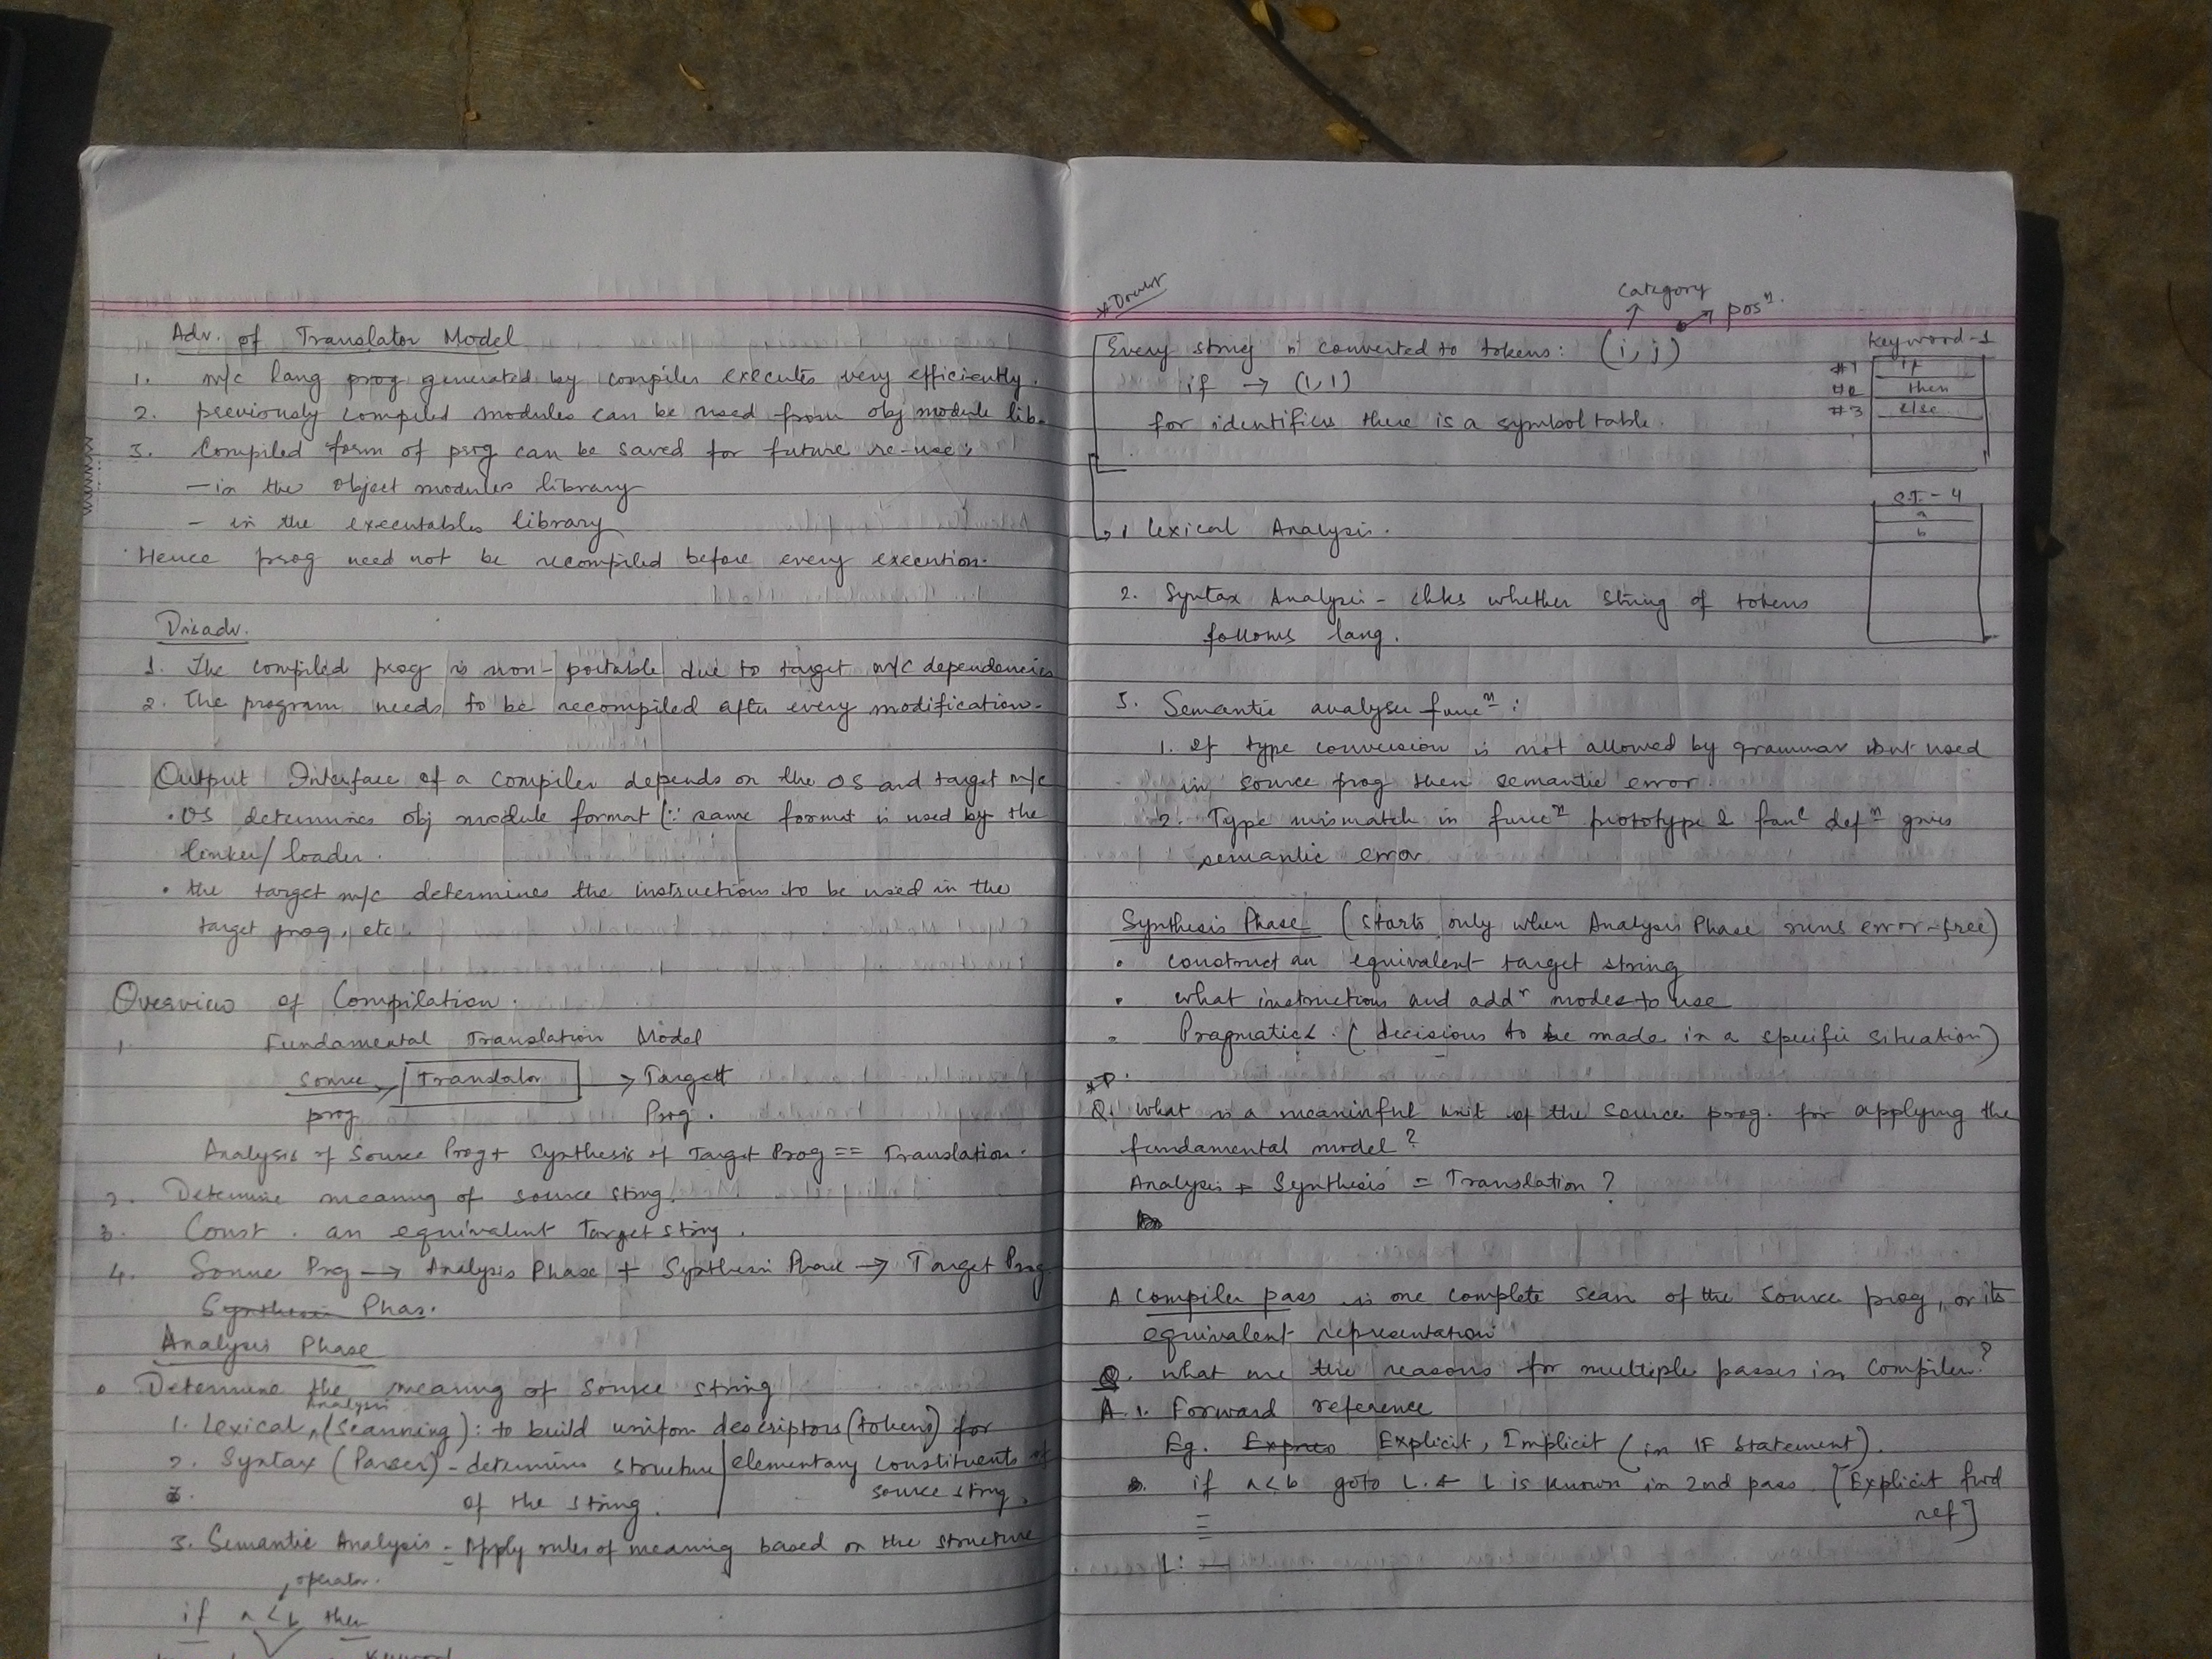 Adv. of Translator Model
1. m/c lang prog generated by compiler executes very efficiently.
2. previously compiled modules can be used from obj module lib.
3. Compiled form of prog can be saved for future re-use:
- in the object modules library
- in the executables library
Hence prog need not be recompiled before every execution.
Disadv.
1. The compiled prog is non-portable due to target m/c dependencies
2. The program needs to be recompiled after every modification.
Output Interface of a compiler depends on the OS and target m/c
• OS determines obj module format (∵ same format is used by the
linker/loader.
• the target m/c determines the instructions to be used in the
target prog, etc.
Overview of Compilation.
1. Fundamental Translation Model
Source → Translator → Target
prog Prog.
Analysis of Source Prog + Synthesis of Target Prog == Translation.
2. Determine meaning of source string.
3. Const. an equivalent Target string.
4. Source Prog → Analysis Phase + Synthesis Phase → Target Prog
Synthesis Phas.
Analysis Phase
• Determine the meaning of source string
1. Lexical Analysis (Scanning): to build uniform descriptors (tokens) for
2. Syntax (Parser) - determine structure / elementary constituents of
of the string. source string.
3. Semantic Analysis - Apply rules of meaning based on the structure
operator.
if a < b then
*Driver
category
posⁿ.
Every string is converted to tokens: (i, j)
if → (1, 1)
for identifiers there is a symbol table.
Keyword - 1
#1 if
#2 then
#3 else
S.T. - 4
a
b
1. Lexical Analysis.
2. Syntax Analysis - chks whether string of tokens
follows lang.
3. Semantic analyser funcⁿ:
1. If type conversion is not allowed by grammar but used
in source prog then semantic error.
2. Type mismatch in funcⁿ prototype & funcⁿ defⁿ gives
semantic error
Synthesis Phase (starts only when Analysis Phase error-free)
• construct an equivalent target string
• what instructions and addr modes to use
• Pragmatics. (decisions to be made in a specific situation)
Q. What is a meaningful unit of the source prog. for applying the
fundamental model?
Analysis + Synthesis = Translation?
A compiler pass is one complete scan of the source prog, or its
equivalent representation
Q. What are the reasons for multiple passes in compiler.?
A-1. Forward reference
Eg. Express Explicit, Implicit (in IF statement).
if a<b goto L. ← L is known in 2nd pass. (Explicit fwd
ref)
L: —